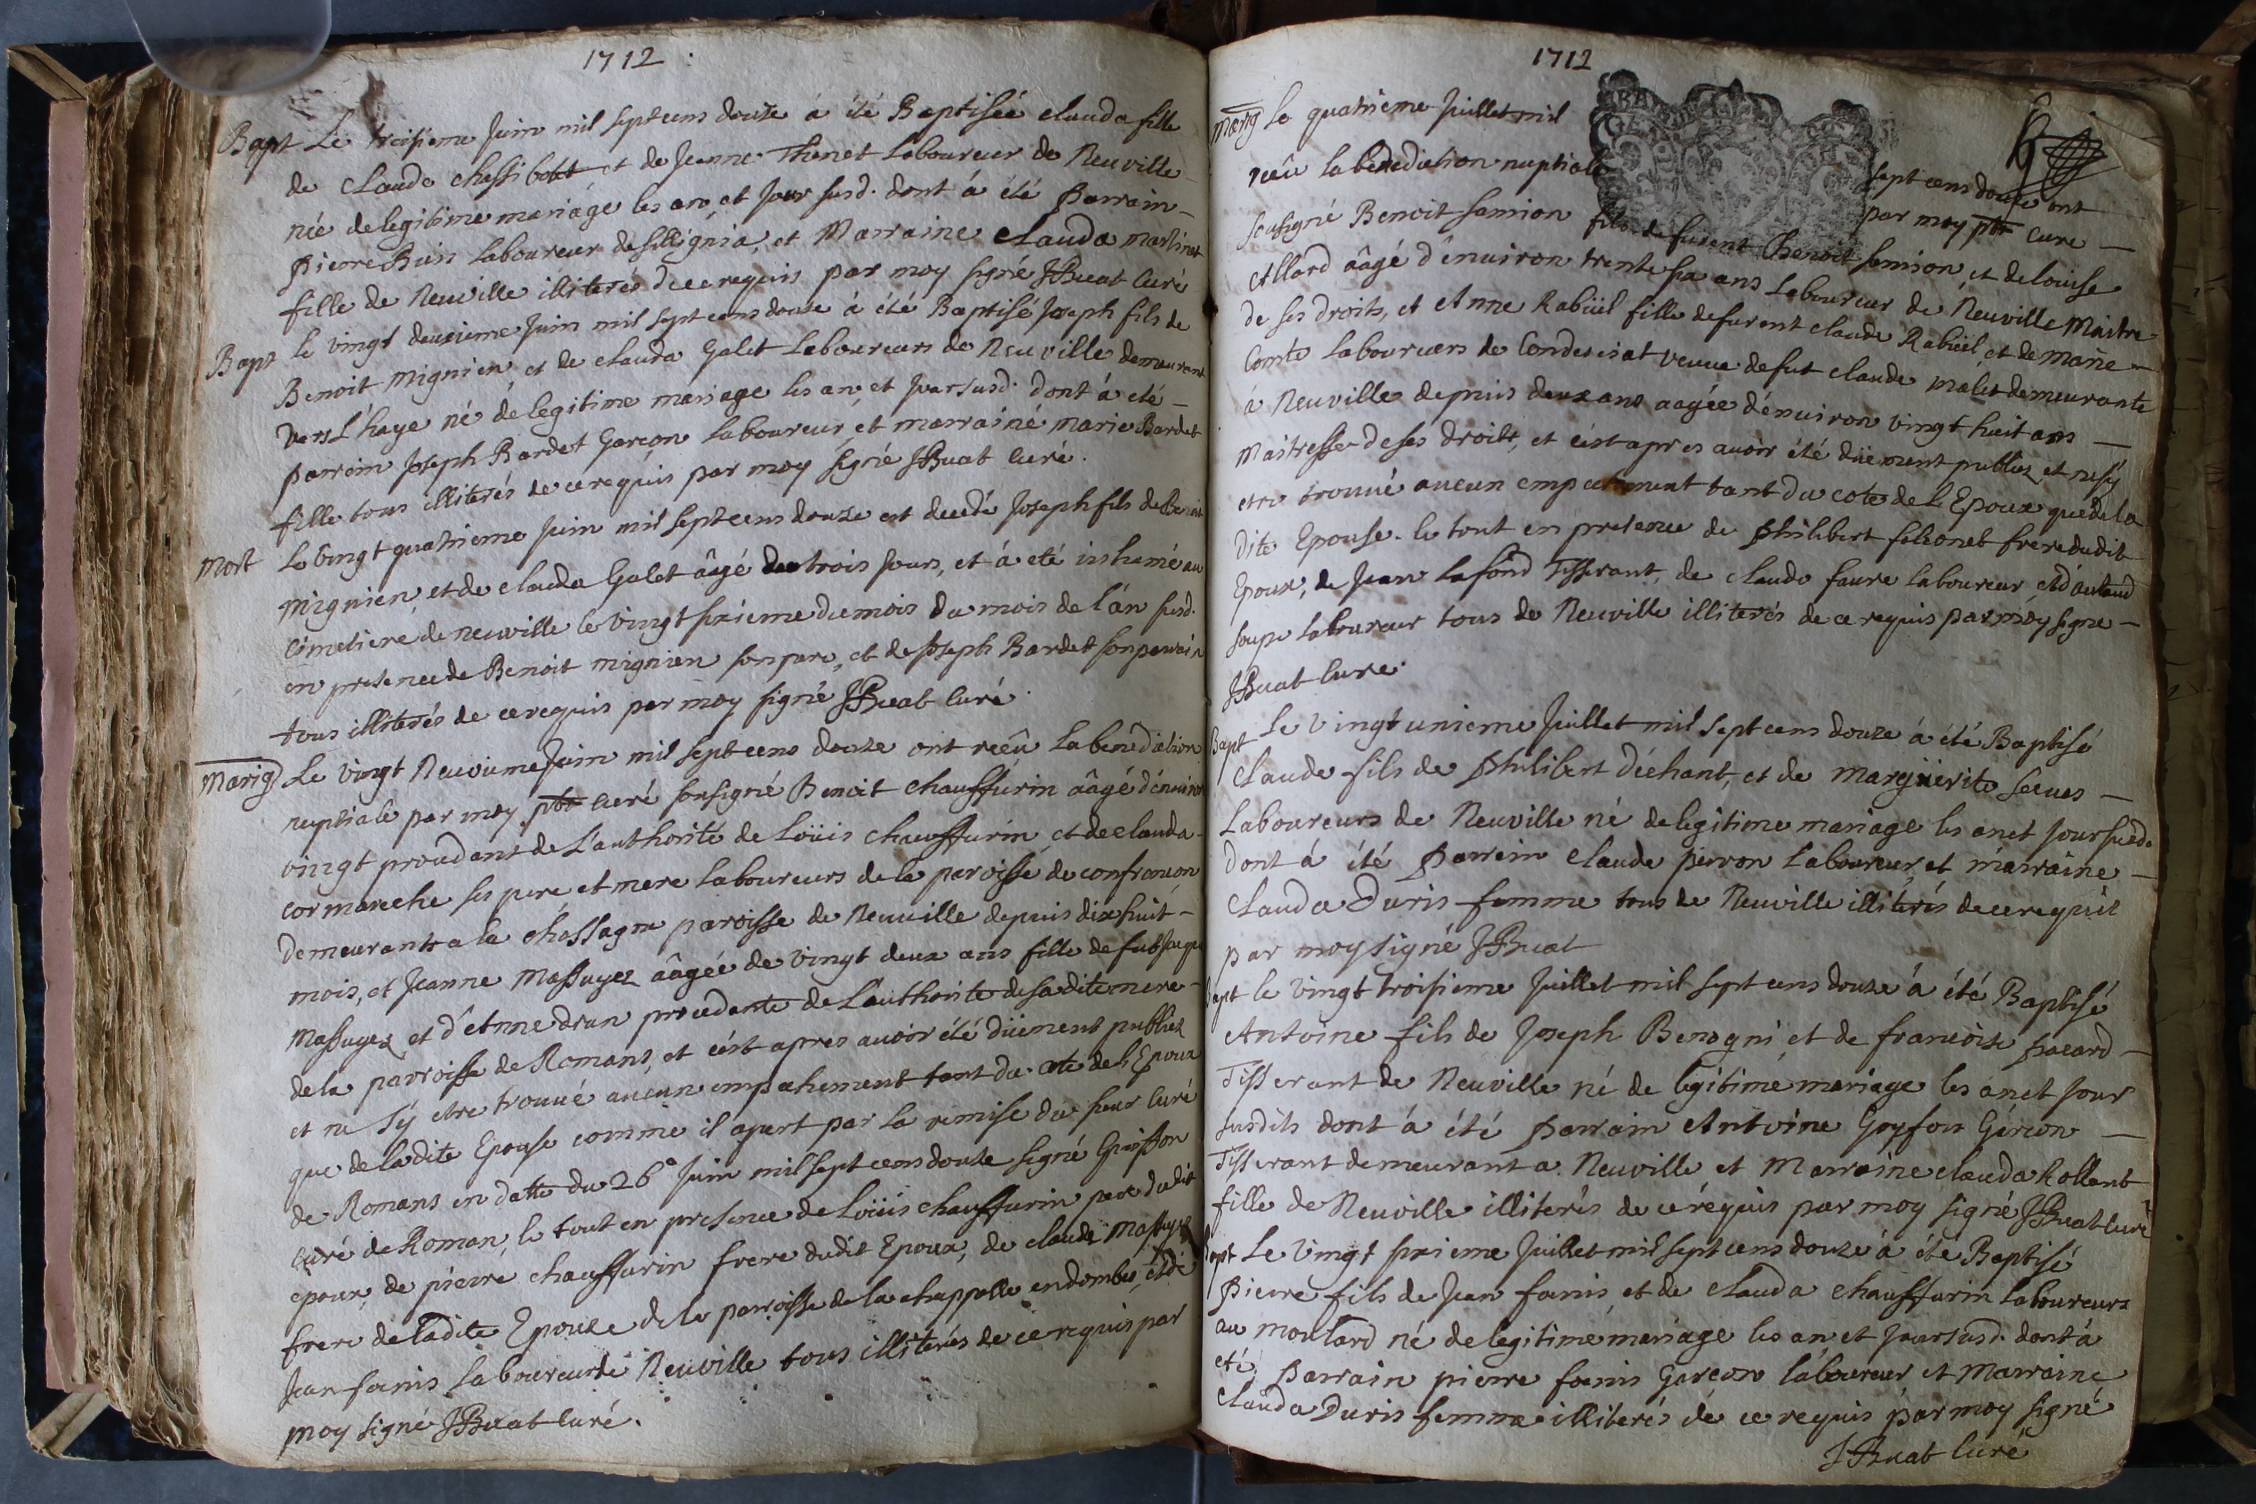 1712
Bapt Le troisieme Juin mil sept cens douze à été Baptisée clauda fille
de Claude chassibott et de Jeanne Thenet Laboureur de Neuville
née de legitime mariage les an et jour susd. dont à été Parrain
pierre Buis laboureur de sillignia, et Marraine clauda martinet
fille de Neuville illiterés de ce requis par moy signé JBuat Curé
Bapt le vingt deuxieme Juin mil sept cens douze à été Baptisé Joseph fils de
Benoit Mignien et de clauda Galet Laboureurs de Neuville demeurant
vers l'haye né de legitime mariage les an, et jour susd. dont à eté
parrain Joseph Bardet Garçon laboureur, et marraine marie Bardet
fille tous illiterés de ce requis par moy signé JBuat Curé.
Mort Le vingt quatrieme Juin mil sept cens douze est decedé Joseph fils de Benoit
Mignien, et de clauda Galet âgé de trois jours, et à eté inhumé au
cimetiere de neuville le vingt sixieme du mois du mois de l'an susd.
en presence de Benoit mignien son pere, et de Joseph Bardet son parrain
tous illiterés de ce requis par moy signé JBuat Curé.
Marig Le vingt Neuvieme Juin mil sept cens douze ont reçû la benediction
nuptiale par moy pbtr curé sousigné Benoit chauffurin âagé d'environ
vingt procedant de l'authorité de Loüis chauffurin et de clauda
cormareche ses pere et mere laboureurs de la paroisse de confrançon
demeurants a la chassagne paroisse de Neuville depuis dix huit
mois, et Jeanne Massuyez âagée de vingt deux ans fille de fut Jaque
Massuyez et d'Anne drun procedante de l'authorite de sadite mere
de la parroisse de Romans, et c'est apres avoir été düement publiez
et ne s'y etre trouvé aucun empechement tant du côte de l'Epoux
que de ladite Epouse comme il apert par la remise du sieur Curé
de Romans en datte du 26e Juin mil sept cens douze signé
curé de Roman, le tout en presence de Loüis chauffurin pere dudit
epoux, de pierre chauffurin frere dudit Epoux, de claude Massuyez
frere de ladite Epouze de la parroisse de la chappelle en dombes, et de
Jean foinis laboureur de Neuville tous illiterés de ce requis par
moy signé JBuat Curé.
1712
Marig Le quatrieme Juillet mil sept cens douze ont
reçû la benediction nuptiale par moy pbtr curé
sousigné Benoit samion fils de furent Benoit samion, et de louise
Allard âagé d'environ trente six ans Laboureur de Neuville Maitre
de ses droits, et Anne Rabüel fille de furent claude Rabüel et de marie
Comte laboureurs de Condeissiat veuve de fut claude malet demeurante
à Neuville depuis deux ans aagée d'environ vingt huit ans
Maitresse de ses droits, et c'est apres avoir été düement publiez et ne s'y
etre trouvé aucun empechement tant du coté de l'Epoux que de la
dite Epouse. le tout en presence de Philibert felconet frere dudit
Epoux, de Jean lafond Tisserant, de claude faure laboureur, et d'
soupe laboureur tous de Neuville illiterés de ce requis par moy signé
JBuat Curé.
Bapt Le vingt unieme Juillet mil sept cens douze à été Baptisé
claude fils de Philibert déchant, et de Margüerite serves
Laboureurs de Neuville né de legitime mariage les an et jour susd.
dont à été Parrain claude perron laboureur, et marraine
Clauda Duris femme tous de Neuville illiterés de ce requis
par moy signé JBuat
Bapt le vingt troisieme Juillet mil sept cens douze à été Baptisé
Antoine fils de Joseph Benogni et de francoise pacard
Tisserant de Neuville né de legitime mariage les an et jour
susdits dont à été Parrain Antoine Goyfon Gárcon
Tisserant demeurant a Neuville et Marraine clauda Rollant
fille de Neuville illiterés de ce requis par moy signé JBuat Curé
Bapt Le vingt sixieme Juillet mil sept cens douze à été Baptisé
Pierre fils de Jean foinis, et de clauda chauffurin laboureurs
au moulard né de legitime mariage les an et jour susd. dont à
eté Parrain pierre foinis Garcon laboureur et Marraine
Clauda Duris femme illiterés de ce requis par moy signé
JBuat Curé